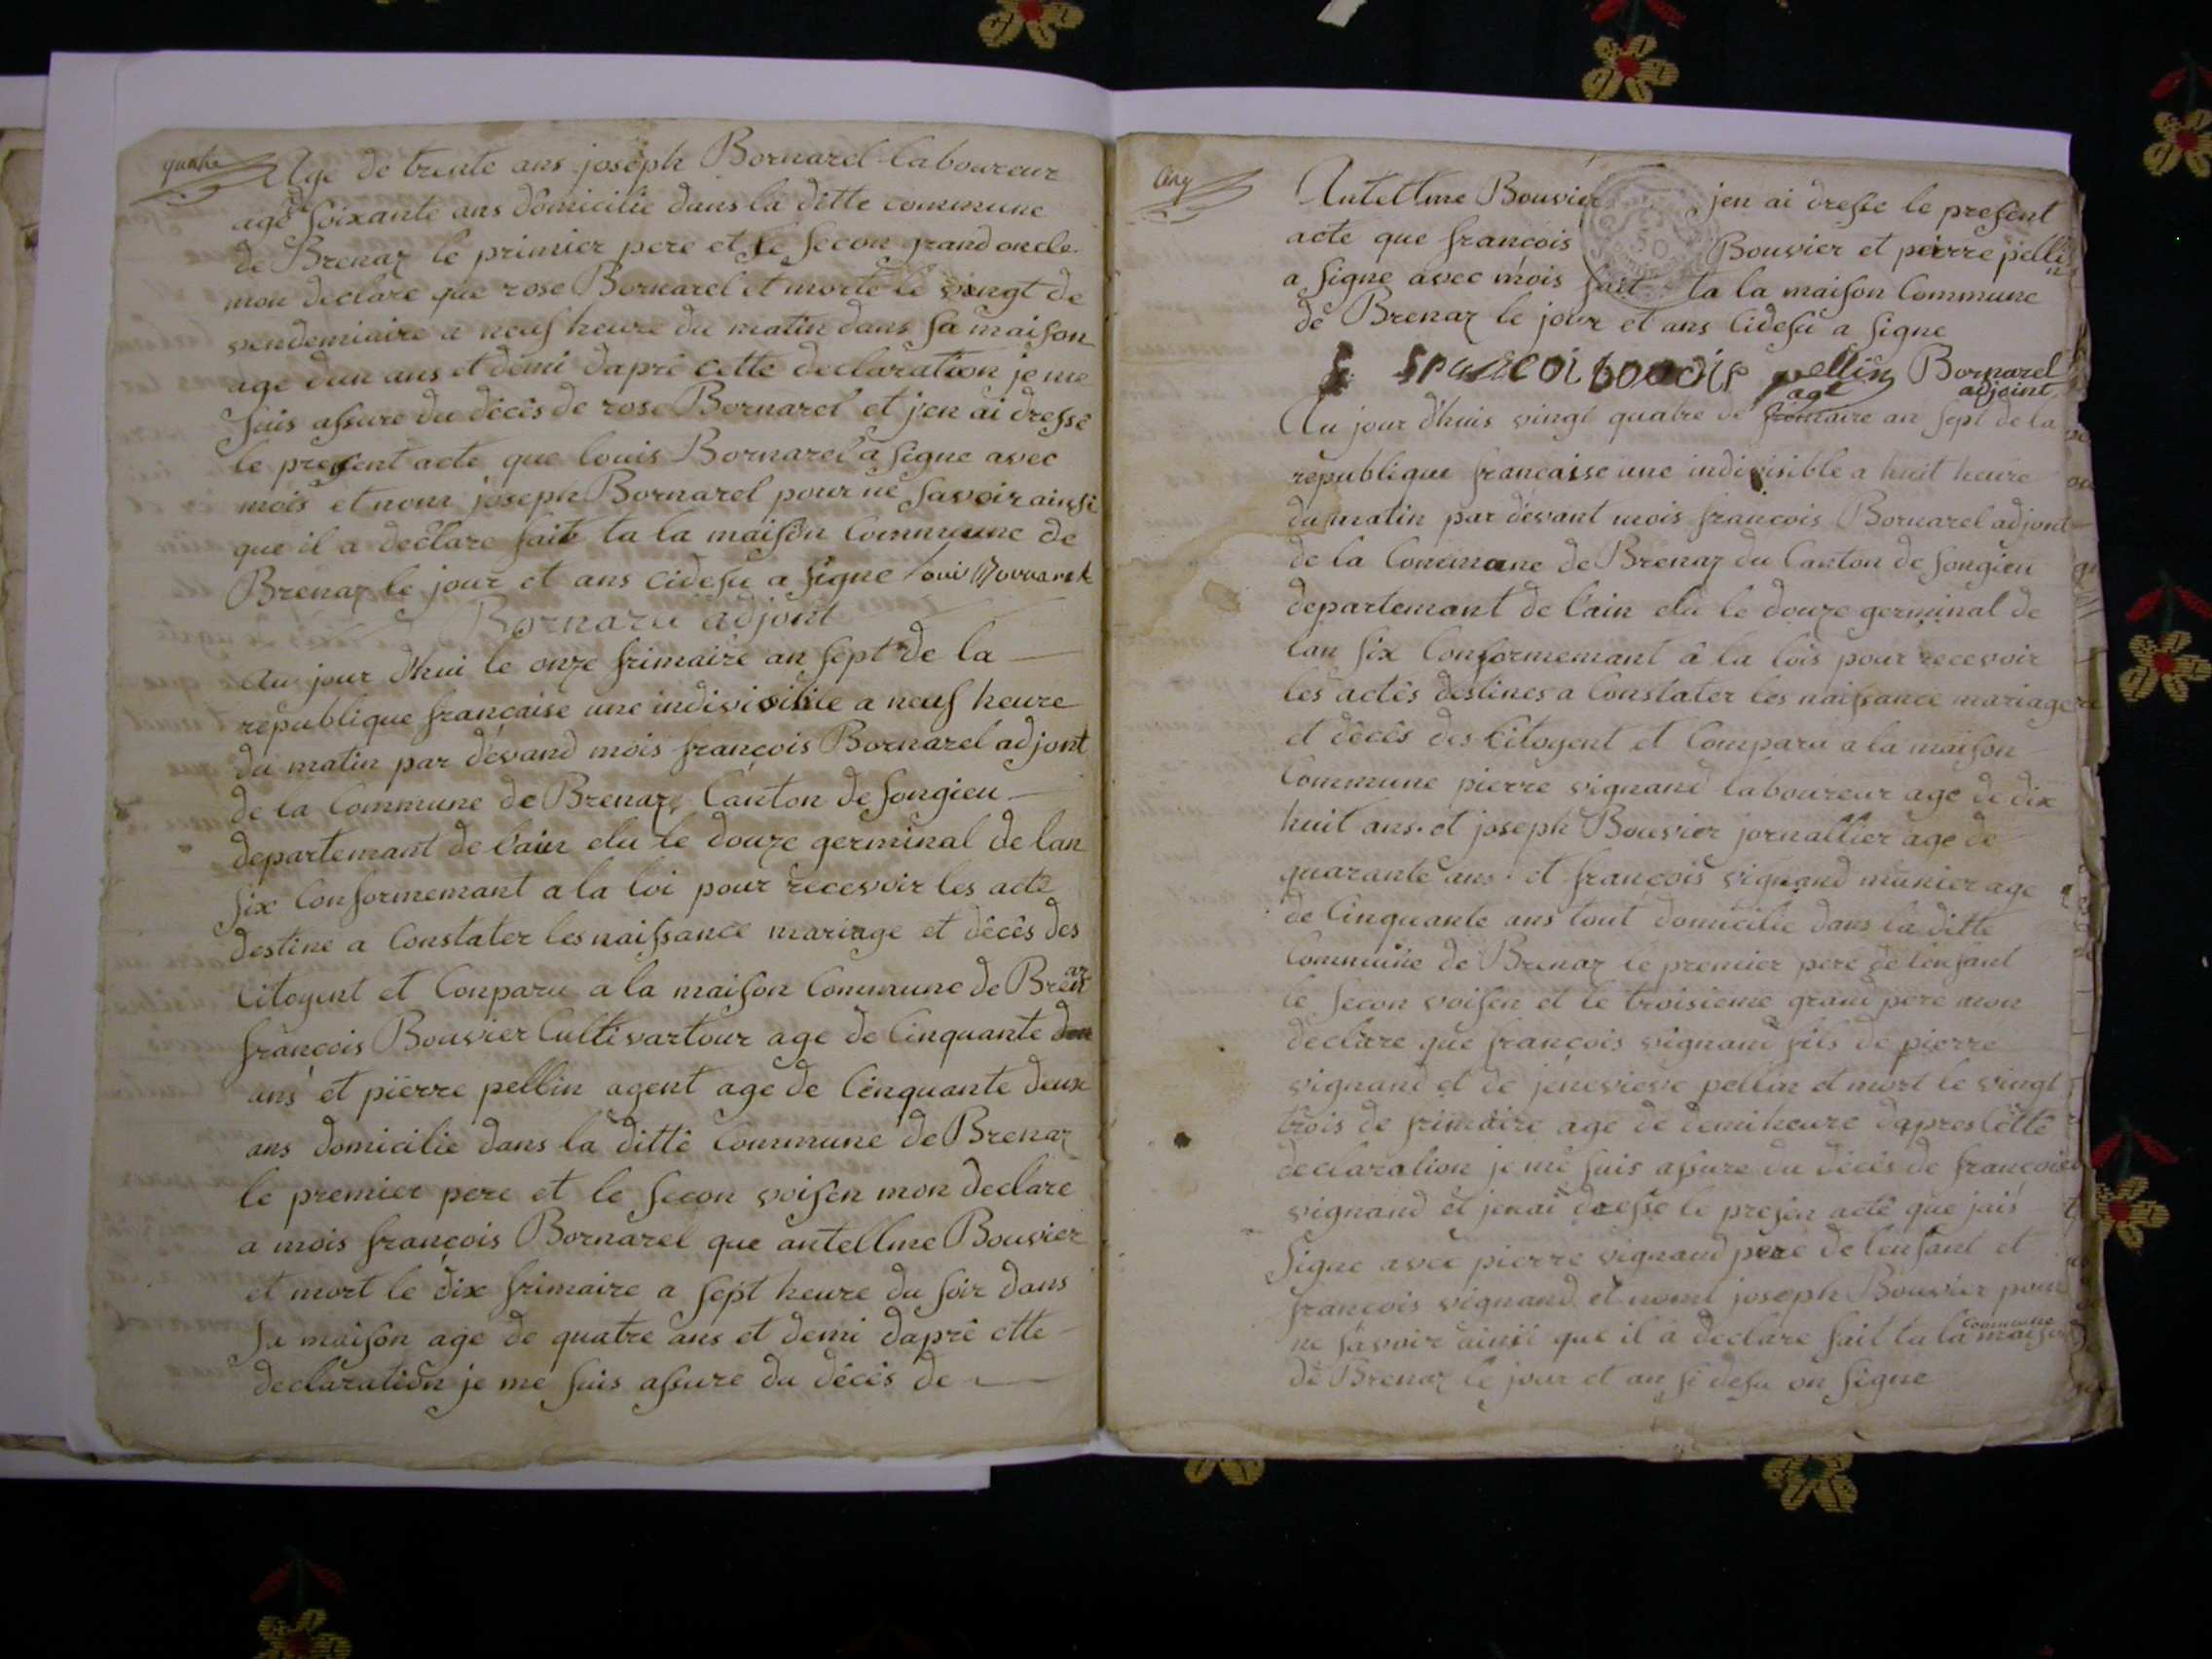 quatre
Age de trente ans joseph Bornarel laboureur
agé soixante ans domicilie dans la ditte commune
de Brenaz le primier pere et le secon grand oncle
mon declare que rose Bornarel et morte le vingt de
vendemiaire a neuf heure du matin dans sa maison
age dun ans et demi dapré cette declaration je me
suis assure du décès de rose Bornarel et j'en ai dressé
le present acte que louis Bornarel a signe avec
mois et nom joseph Bornarel pour ne savoir ainsi
que il a declare fait ta la maison Commune de
Brenaz le jour et ans cidesu a signe loui Bornarel
Bornarel adjont
Au jour dhui le onze frimaire an sept de la
republique française une indivisible a neuf heure
du matin par devand mois françois Bornarel adjont
de la Commune de Brenaz Canton de songieu
departemant de l'ain elu le douze germinal de lan
six Conformemant a la loi pour recevoir les acte
destine a Constater les naissance mariage et décès des
Citoyent et Conparu a la maison Commune de Brenaz
françois Bouvier Cultivartour age de Cinquante deu
ans et pierre pellin agent age de Cinquante deux
ans domicilie dans la ditte Commune de Brenaz
le premier pere et le secon voisen mon declare
a mois françois Bornarel que antellme Bouvier
et mort le dix frimaire a sept heure du soir dans
sa maison age de quatre ans et demi dapré ette
declaration je me suis assure du décès de
Cinq
Antellme Bouvier jen ai dresse le present
acte que françois Bouvier et pierre pellin
a signe avec mois fait ta la maison Commune
de Brenaz le jour et ans Cidesu a signe
francoi bouvier pellin agt Bornarel adjoint
Au jour d'huis vingt quatre de frimaire an sept de la
republique francaisse une indivisible a huit heure
du matin par dévant mois francois Bornarel adjont
de la Commune de Brenaz du Canton de songieu
departemant de l'ain elu le douze germinal de
lan six Conformemant à la lois pour recevoir
les actès destines a Constater les naissance mariage
et décès des Citoyent et Comparu a la maison
Commune pierre vignand laboureur age de dix
huit ans. et joseph Bouvier jornallier age de
quarante ans. et françois vignand munier age
de Cinquante ans tout domicilie dans la ditte
Commune de Brenaz le premier pere de l'enfant
le secon voisen et le troisieme grand pere mon
declare que francois vignand fils de pierre
vignand et de jenevieve pellin et mort le vingt
trois de frimaire age de demi heure dapres Cette
declaration je me suis assure du décès de françois
vignand et jen ai dresse le presen acte que jais
signe avec pierre vignand pere de lenfant et
francois vignand et nomt joseph Bouvier pour
ne savoir ainsi que il a declare fait ta la maison Commune
de Brenaz le jour et an si desu on signe